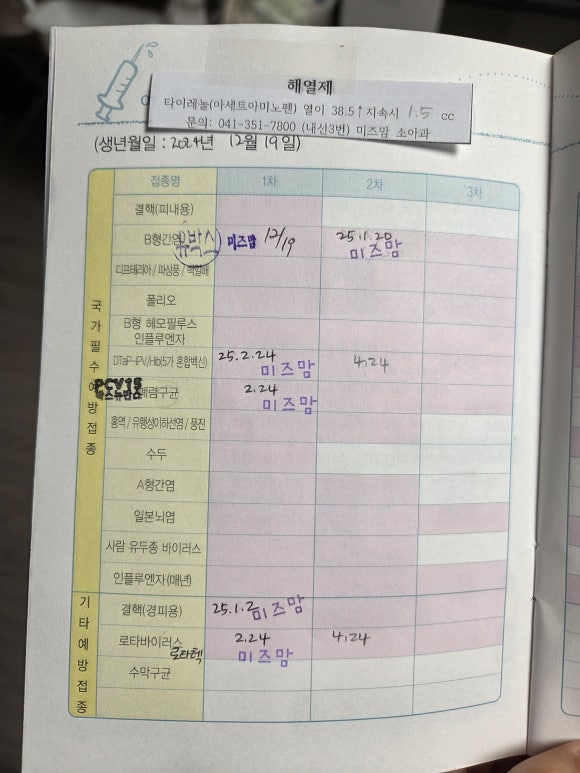 해열제
타이레놀(아세트아미노펜) 열이 38.5↑지속시 1.5 cc
문의: 041-351-7800 (내선3번) 미즈맘 소아과
(생년월일 : 2024년 12월 19일)
접종명 1차 2차 3차
국가필수예방접종
결핵(피내용)
B형간염 유박스 미즈맘 12/19 25.1.20 미즈맘
디프테리아 / 파상풍 / 백일해
폴리오
B형 헤모필루스
인플루엔자
DTaP-IPV/Hib(5가 혼합백신) 25.2.24 미즈맘 4.24
PCV15
박스뉴반스
폐렴구균 2.24 미즈맘
홍역 / 유행성이하선염 / 풍진
수두
A형간염
일본뇌염
사람 유두종 바이러스
인플루엔자 (매년)
기타예방접종
결핵(경피용) 25.1.2 미즈맘
로타바이러스 로타텍 2.24 미즈맘 4.24
수막구균